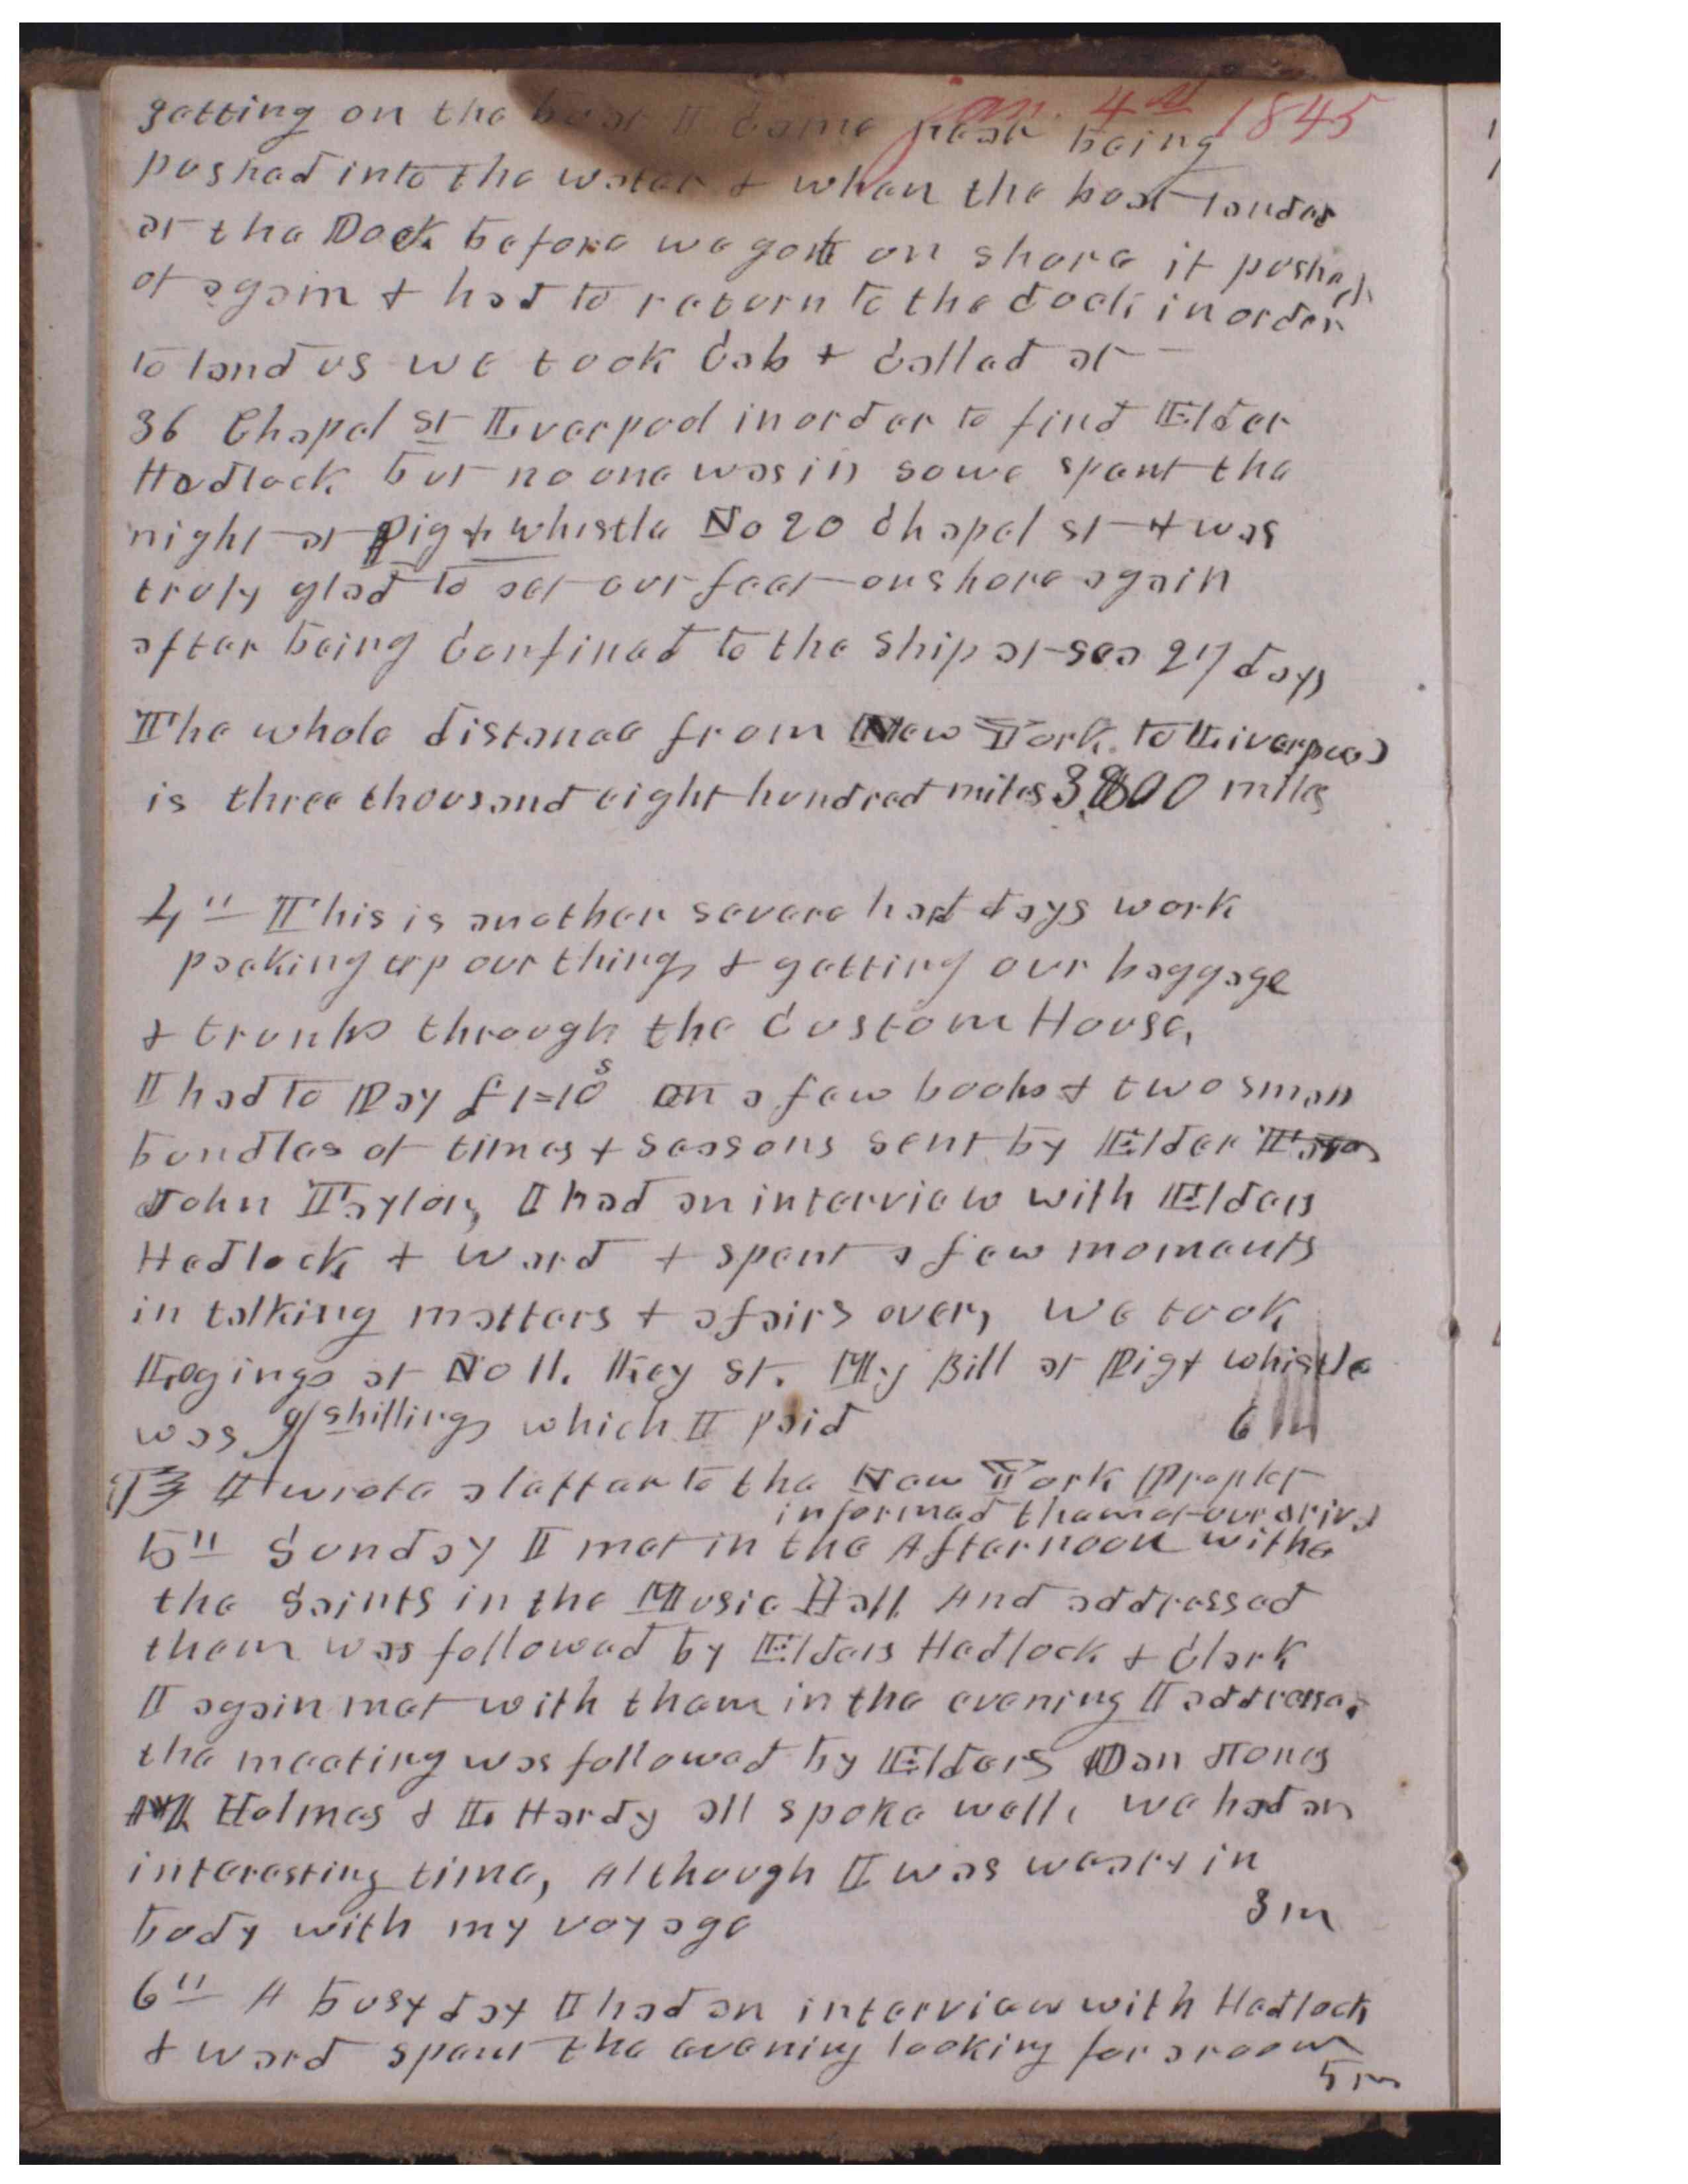 Jan. 4th 1845
getting on the boat I came near being
pushed into the water & when the boat landed
at the Dock before we got on shore it pushed
of again & had to return to the dock in order
to land us we took cab & called at
36 Chapel st Liverpool in order to find Elder
Hedlock but no one was in so we spent the
night at Pig & whistle No 20 Chapel st & was
truly glad to set our feet on shore again
after being confined to the ship at sea 27 days
The whole distance from New York to Liverpool
is three thousand eight hundred miles 3,800 miles
4" This is another severe hard days work
packing up our things & getting our baggage
& trunks through the Custom House,
I had to Pay £1=10s on a few books & two small
bundles of times & seasons sent by Elder
John Taylor, I had an interview with Elders
Hedlock & Ward & spent a few moments
in talking matters & afairs over, we took
Logings at No 11. Key st. My Bill at Pig & whistle
was 9/ shillings which I paid
6 m
I wrote a letter to the New York Prophet
informed them of our arival
5" Sunday I met in the Afternoon withe
the Saints in the Music Hall And addressed
them was followed by Elders Hedlock & Clark
I again met with them in the evening I addressed
the meeting was followed by Elders Dan Jones
M Holmes & L Hardy all spoke well, we had an
interesting time, Although I was weary in
body with my voyage
3 m
6" A busy day I had an interview with Hedlock
& ward spent the evening looking for a room
5 m